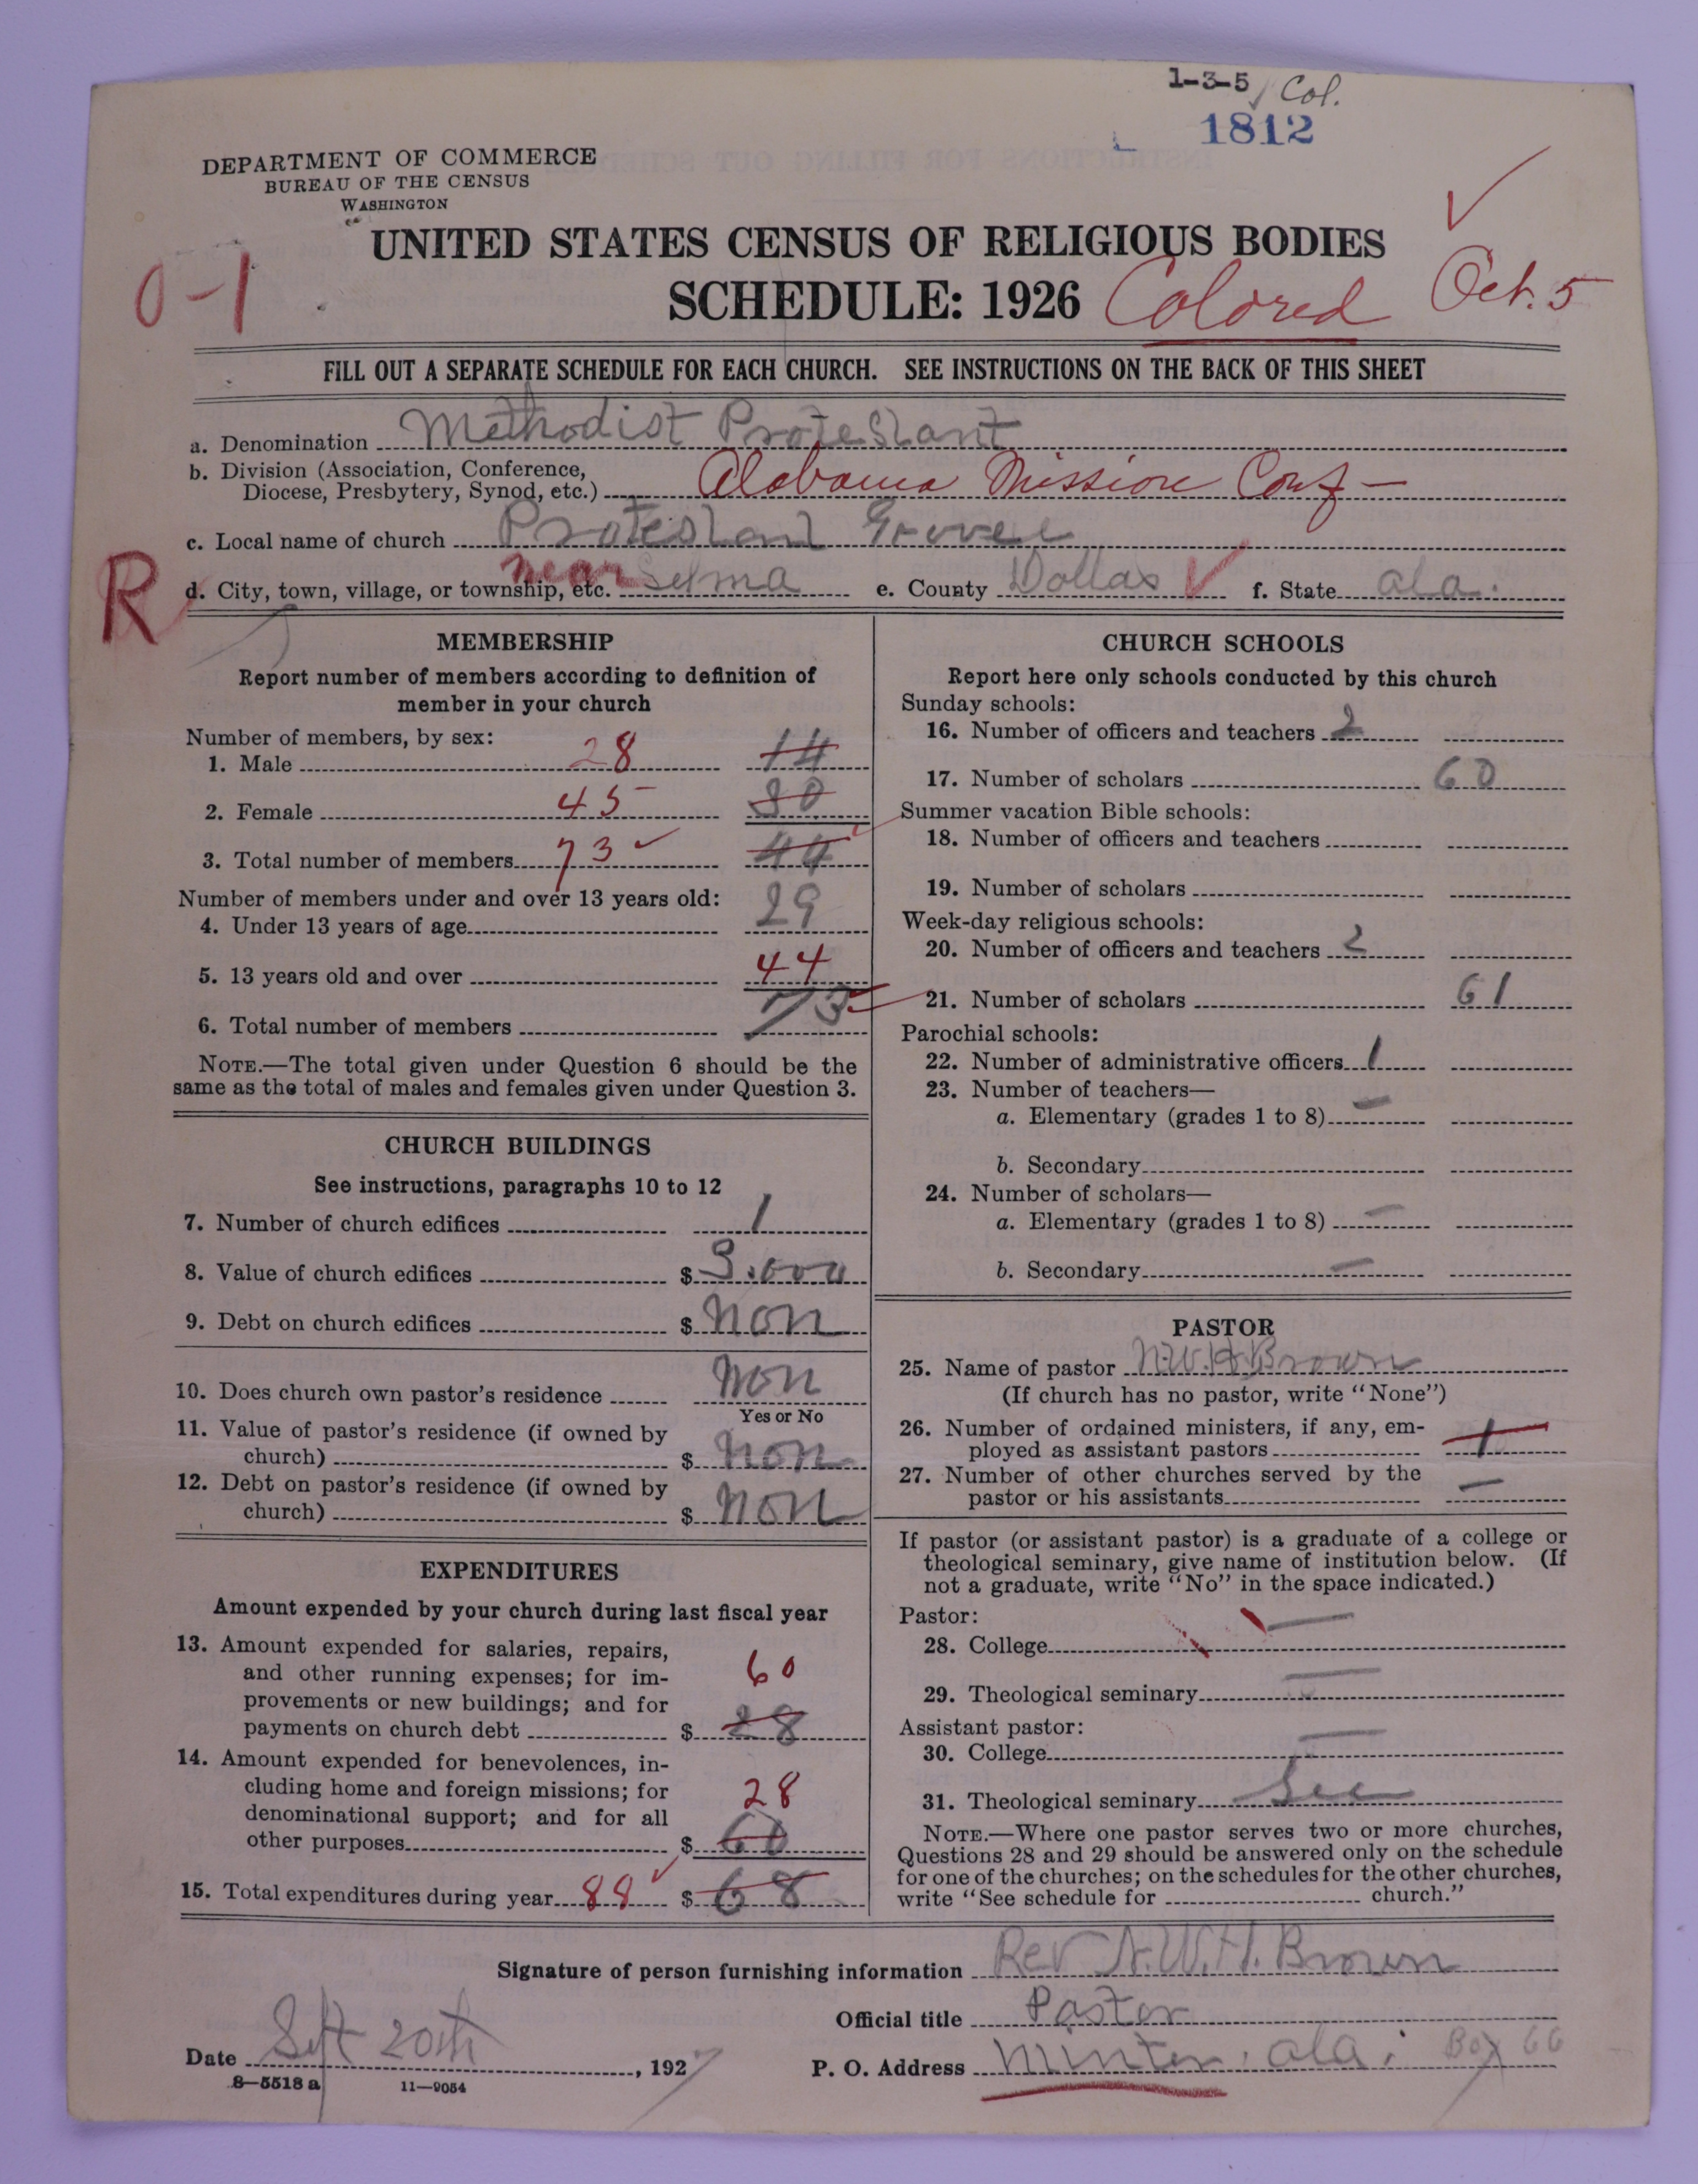 1-3-5 Col.
1812
DEPARTMENT OF COMMERCE
BUREAU OF THE CENSUS
WASHINGTON
UNITED STATES CENSUS OF RELIGIOUS BODIES
0-1
SCHEDULE: 1926 Colored Oct. 5
FILL OUT A SEPARATE SCHEDULE FOR EACH CHURCH. SEE INSTRUCTIONS ON THE BACK OF THIS SHEET
a. Denomination Methodist Protestant
b. Division (Association, Conference,
Diocese, Presbytery, Synod, etc.) Alabama Mission Conf-
c. Local name of church Protestant Grove
R d. City, town, village, or township, etc. near Selma e. County Dollas f. State ala.
MEMBERSHIP
Report number of members according to definition of
member in your church
Number of members, by sex:
1. Male 28 14
2. Female 45 30
3. Total number of members 73 44
Number of members under and over 13 years old:
4. Under 13 years of age 29
5. 13 years old and over 44
6. Total number of members 73
NOTE.—The total given under Question 6 should be the
same as the total of males and females given under Question 3.
CHURCH BUILDINGS
See instructions, paragraphs 10 to 12
7. Number of church edifices 1
8. Value of church edifices $
9. Debt on church edifices $ non
10. Does church own pastor's residence non
Yes or No
11. Value of pastor's residence (if owned by
church) $ non
12. Debt on pastor's residence (if owned by
church) $ non
EXPENDITURES
Amount expended by your church during last fiscal year
13. Amount expended for salaries, repairs,
and other running expenses; for im- 60
provements or new buildings; and for
payments on church debt $ 28
14. Amount expended for benevolences, in-
cluding home and foreign missions; for 28
denominational support; and for all
other purposes $ 60
15. Total expenditures during year 88 $ 68
CHURCH SCHOOLS
Report here only schools conducted by this church
Sunday schools:
16. Number of officers and teachers 2
17. Number of scholars 60
Summer vacation Bible schools:
18. Number of officers and teachers
19. Number of scholars
Week-day religious schools:
20. Number of officers and teachers 2
21. Number of scholars 61
Parochial schools:
22. Number of administrative officers 1
23. Number of teachers—
a. Elementary (grades 1 to 8) —
b. Secondary
24. Number of scholars—
a. Elementary (grades 1 to 8) —
b. Secondary —
PASTOR
25. Name of pastor N.W.H. Brown
(If church has no pastor, write "None")
26. Number of ordained ministers, if any, em-
ployed as assistant pastors 1
27. Number of other churches served by the
pastor or his assistants —
If pastor (or assistant pastor) is a graduate of a college or
theological seminary, give name of institution below. (If
not a graduate, write "No" in the space indicated.)
Pastor:
28. College —
29. Theological seminary —
Assistant pastor:
30. College —
31. Theological seminary
NOTE.—Where one pastor serves two or more churches,
Questions 28 and 29 should be answered only on the schedule
for one of the churches; on the schedules for the other churches,
write "See schedule for church."
Signature of person furnishing information Rev N.W.H. Brown
Official title Pastor
Date Sept 20th, 1927 P. O. Address Minter, ala. Box 66
8—5518 a 11—9054